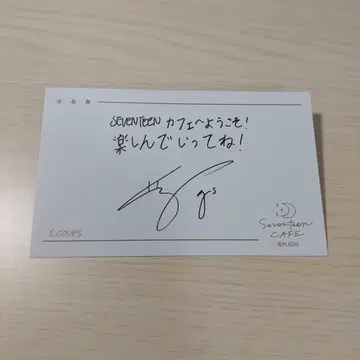 SEVENTEEN カフェへようこそ!
楽しんでいってね!
S.COUPS
Seventeen
CAFE
©PLEDIS